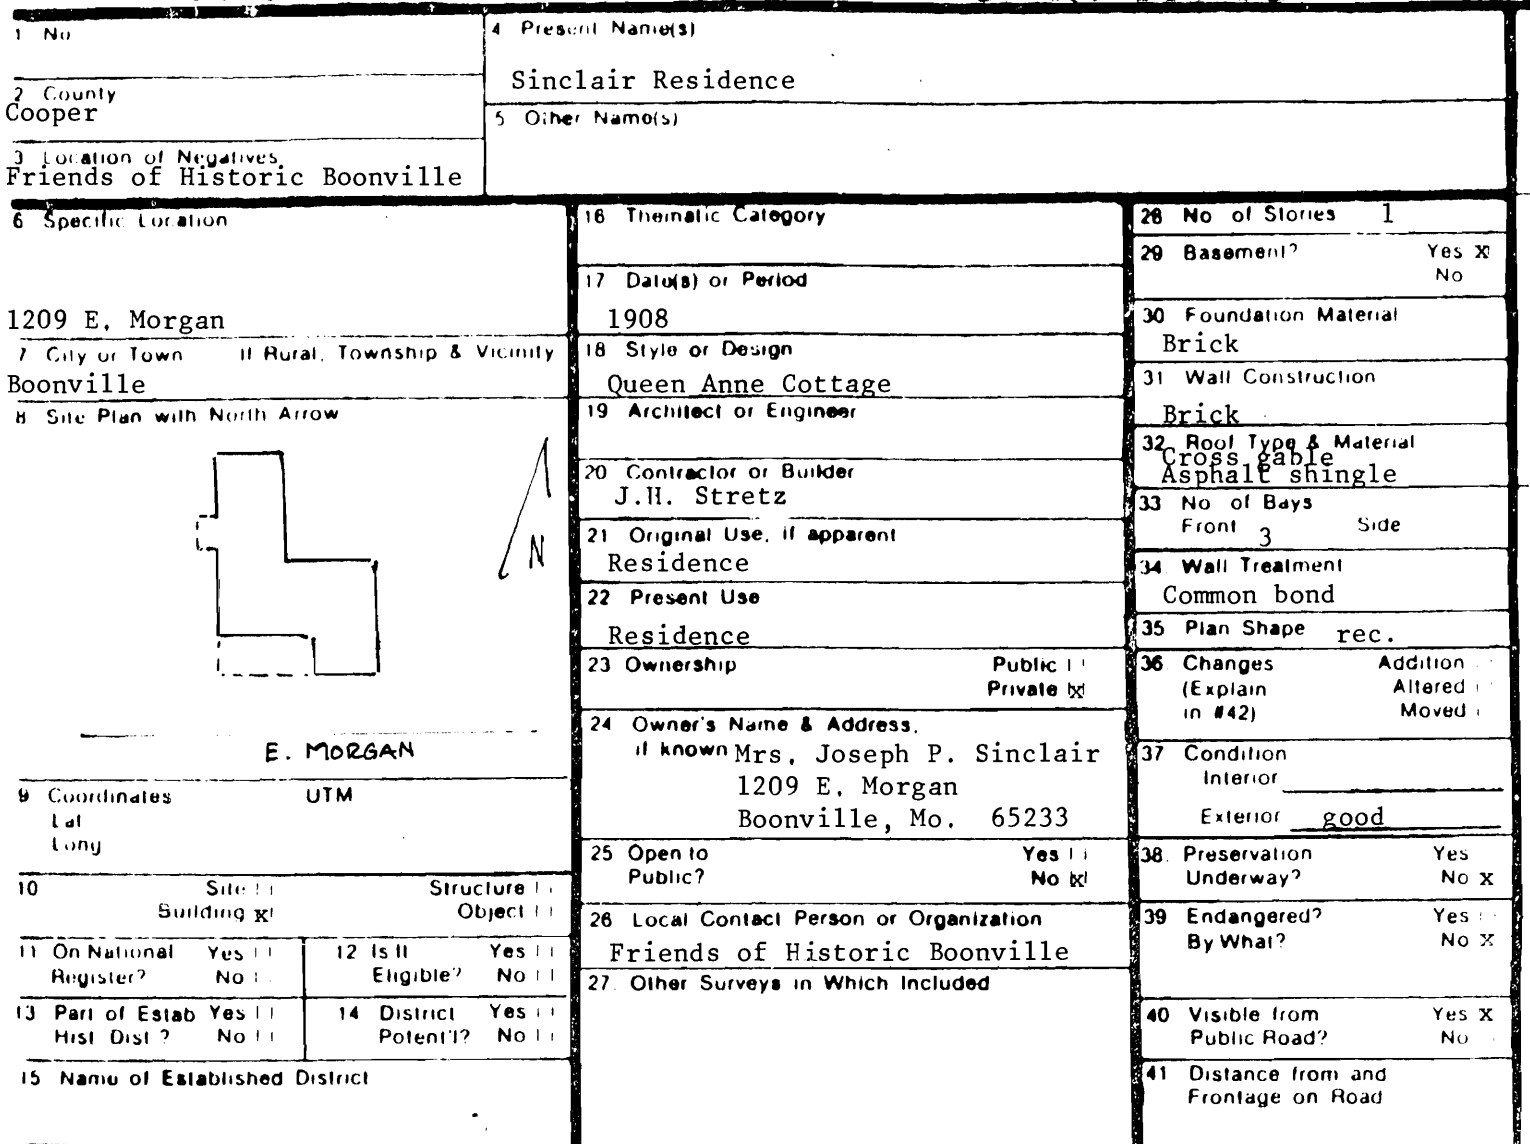 1 No
4 Present Name(s)
Sinclair Residence
2 County
Cooper
5 Other Name(s)
3 Location of Negatives
Friends of Historic Boonville
6 Specific Location
1209 E. Morgan
7 City or Town If Rural, Township & Vicinity
Boonville
8 Site Plan with North Arrow
N
E. MORGAN
9 Coordinates UTM
Lat
Long
10 Site Structure
Building x Object
11 On National Yes
Register? No
12 Is It Yes
Eligible? No
13 Part of Estab Yes
Hist Dist ? No
14 District Yes
Potent'l? No
15 Name of Established District
16 Thematic Category
17 Date(s) or Period
1908
18 Style or Design
Queen Anne Cottage
19 Architect or Engineer
20 Contractor or Builder
J.H. Stretz
21 Original Use, if apparent
Residence
22 Present Use
Residence
23 Ownership Public
Private x
24 Owner's Name & Address,
if known Mrs. Joseph P. Sinclair
1209 E. Morgan
Boonville, Mo. 65233
25 Open to Yes
Public? No x
26 Local Contact Person or Organization
Friends of Historic Boonville
27. Other Surveys in Which Included
28 No of Stories 1
29 Basement? Yes x
No
30 Foundation Material
Brick
31 Wall Construction
Brick
32 Roof Type & Material
Cross gable
Asphalt shingle
33 No of Bays
Front 3 Side
34 Wall Treatment
Common bond
35 Plan Shape rec.
36 Changes Addition
(Explain Altered
in #42) Moved
37 Condition
Interior
Exterior good
38. Preservation Yes
Underway? No x
39 Endangered? Yes
By What? No x
40 Visible from Yes x
Public Road? No
41 Distance from and
Frontage on Road